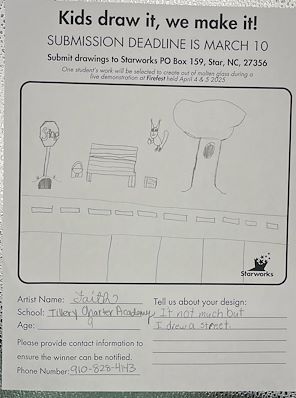 Kids draw it, we make it!
SUBMISSION DEADLINE IS MARCH 10
Submit drawings to Starworks PO Box 159, Star, NC, 27356
One student's work will be selected to create out of molten glass during a
live demonstration at Firefest held April 4 & 5 2025
Stop
Starworks
Artist Name: Faith
School: Tillery Charter Academy
Age:
Please provide contact information to
ensure the winner can be notified.
Phone Number: 910-828-4143
Tell us about your design:
It not much but
I drew a street.